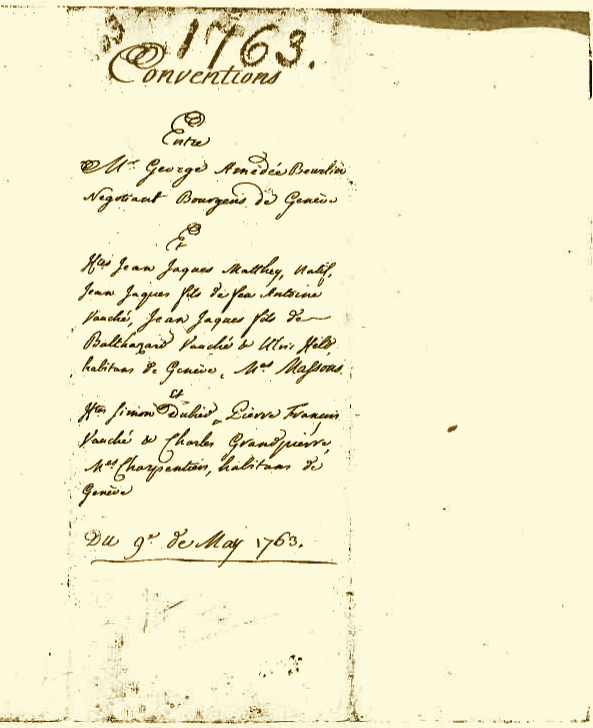 1763.
Conventions
Entre
Mr. George Amédée Beurlin
Negotiant Bourgeois de Genève
Et
Hles Jean Jaques Matthey, Natif,
Jean Jaques fils de feu Antoine
Vauché, Jean Jaques fils de
Balthazard Vauché & Ulric Held,
habitans de Genève, Mes Massons
et
Hles Simon Dubied, Pierre François
Vauché & Charles Grandpierre,
Mes Charpentiers, habitans de
Genève
Du 9e. de May 1763.